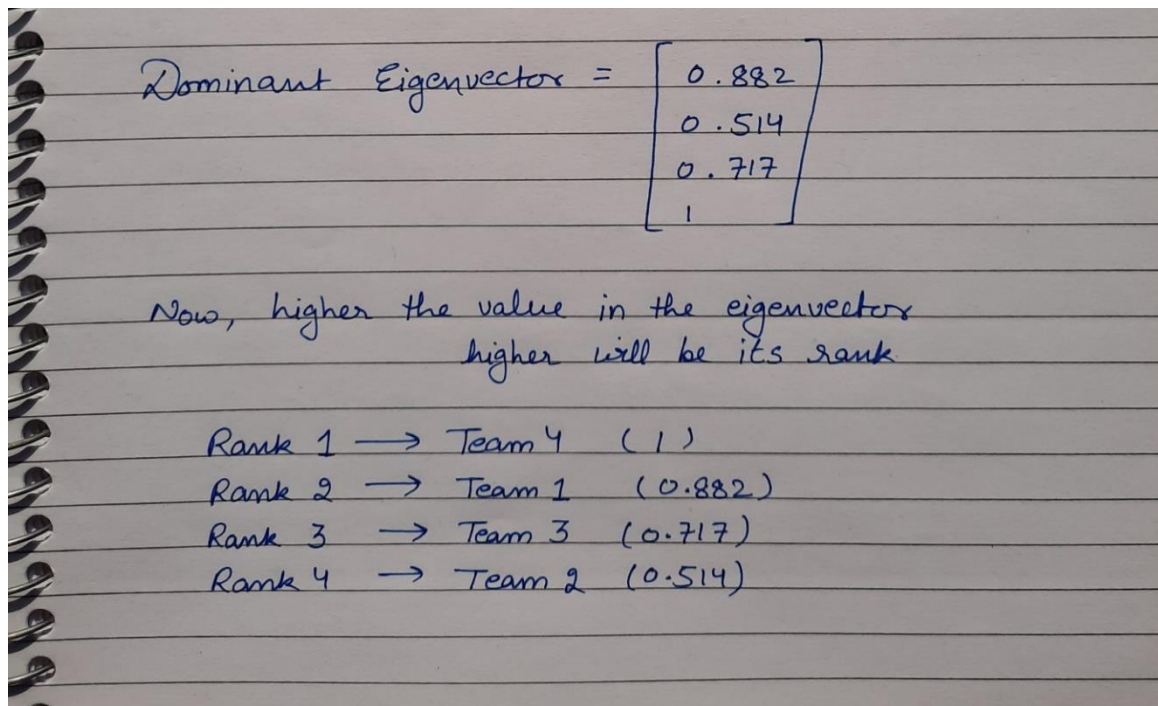 Dominant Eigenvector = [ 0.882
0.514
0.717
1 ]
Now, higher the value in the eigenvector
higher will be its rank
Rank 1 → Team 4 (1)
Rank 2 → Team 1 (0.882)
Rank 3 → Team 3 (0.717)
Rank 4 → Team 2 (0.514)